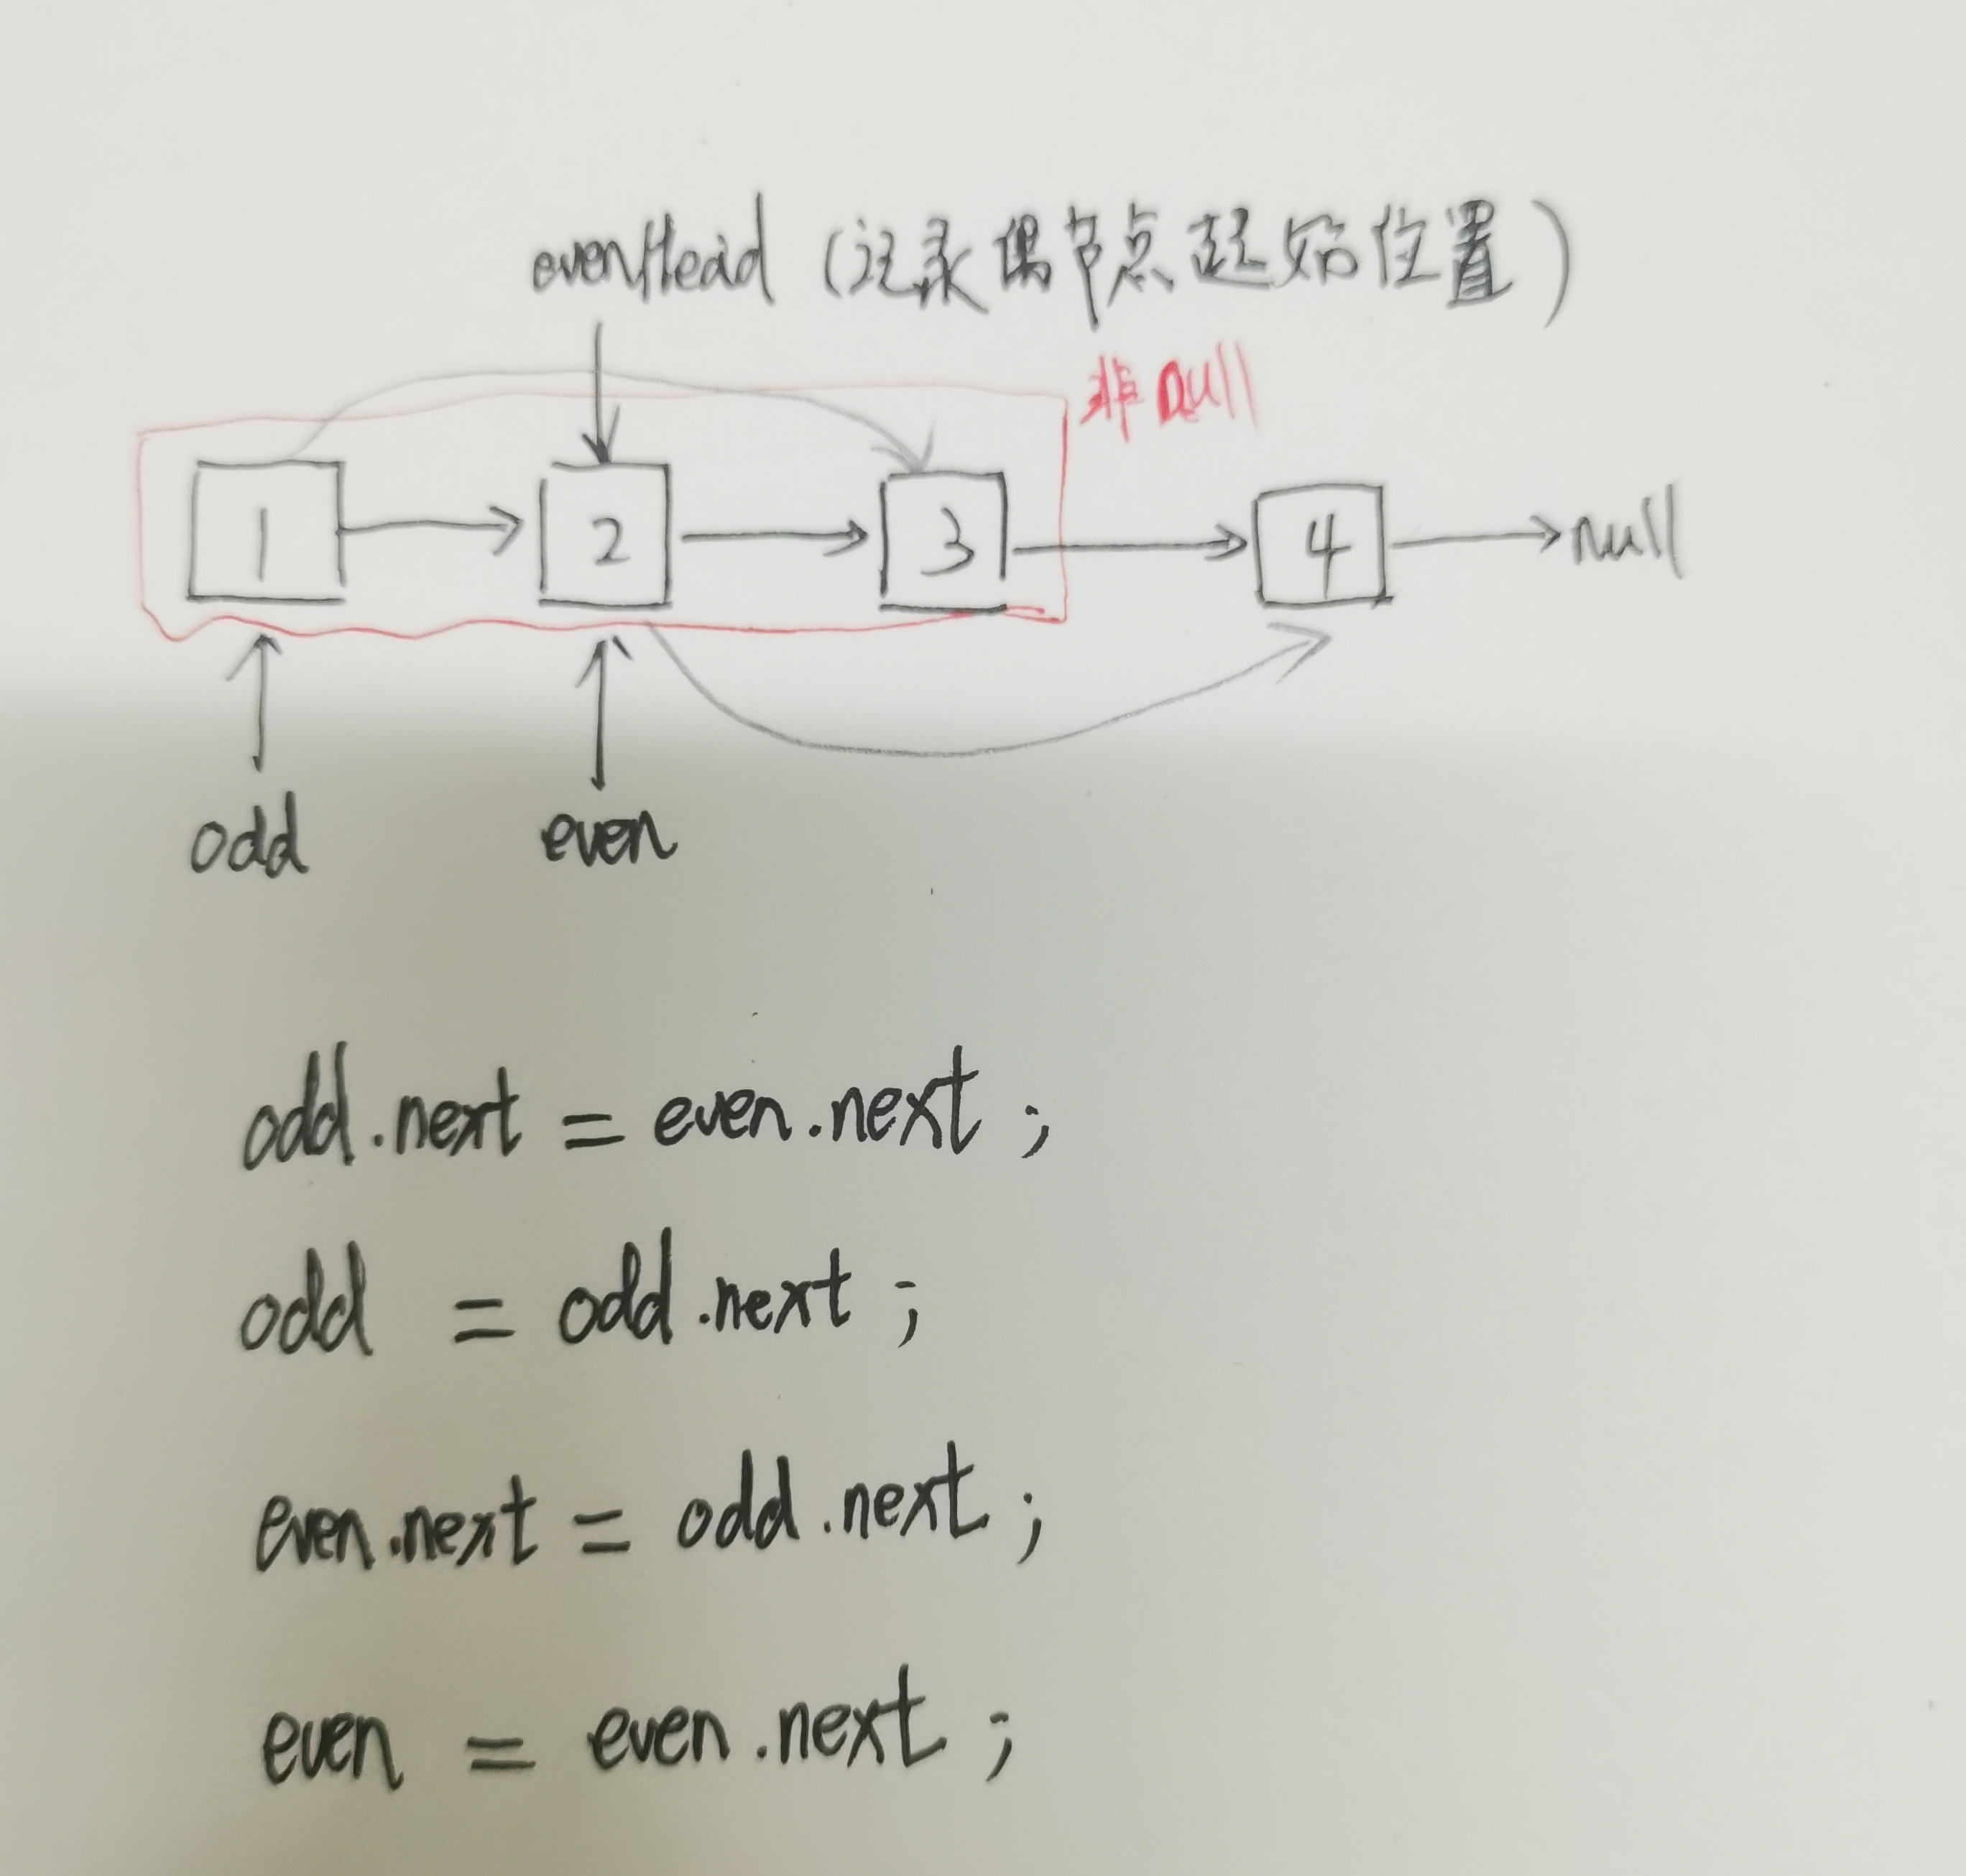 evenHead (记录偶节点起始位置)
非null
1 2 3 4 null
odd even
odd.next = even.next ;
odd = odd.next ;
even.next = odd.next ;
even = even.next ;